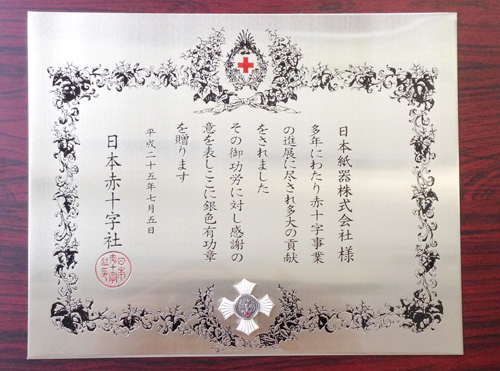 日本紙器株式会社 様
多年にわたり赤十字事業
の進展に尽され多大の貢献
をされました
その御功労に対し感謝の
意を表しここに銀色有功章
を贈ります
平成二十五年七月五日
日本赤十字社
日本
赤十字
社長